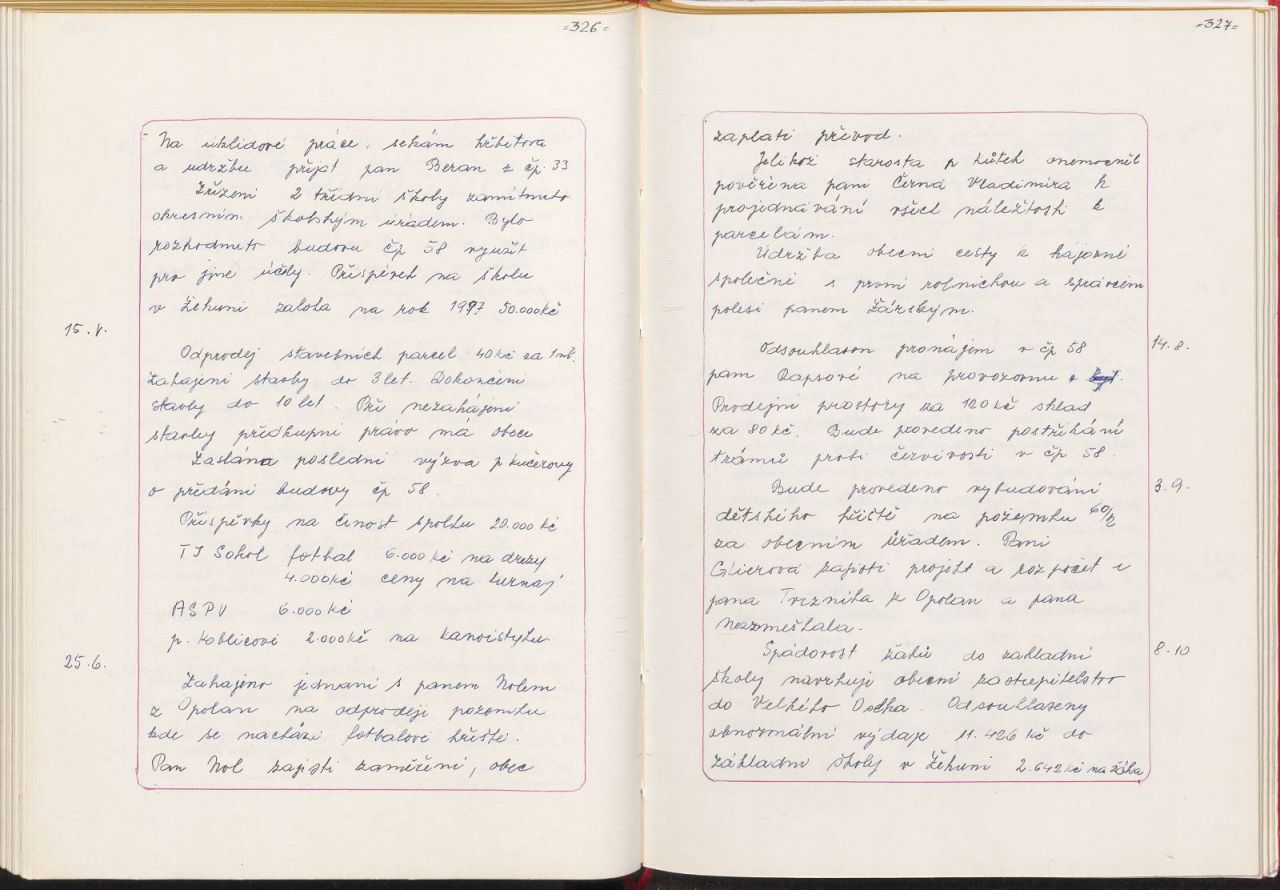 =326=
Na uklidové práce, sekám hřbitova
a udržbu přijat pan Beran z čp. 33
Zřízení 2 třídní školy zamítnuto
okresním školským úřadem. Bylo
rozhodnuto budovu čp 58 využít
pro jiné účely. Příspěvek na školu
v Žehuni záloha na rok 1997 50.000Kč
15. V.
Odprodej stavebních parcel 40Kč za 1m².
Zahájení stavby do 3 let. Dokončení
stavby do 10 let. Při nezahájení
stavby předkupní právo má obec
Zaslána poslední výzva p Kučerovy
o předání budovy čp 58.
Příspěvky na činost spolku 20.000 Kč
TJ Sokol fotbal 6.000 Kč na drezy
4.000Kč ceny na turnaj
ASPV 6.000 Kč
p. Koblicovi 2.000Kč na kanoistyku
25.6.
Zahájeno jednaní s panem Nolem
z Opolan na odprodeji pozemku
kde se nachází fotbalové hřiště.
Pan Nol zajistí zaměření, obec
=327=
zaplatí převod.
Jelikož starosta p Kůtek onemocněl
pověřena paní Černá Vladimíra k
projednávání všech náležitostí k
parcelám.
Údržba obecní cesty k hájovně
společně s první rolnickou a správcem
polesí panem Žárským.
14.8.
Odsouhlason pronájem v čp 58
paní Rapsové na provozovnu
Prodejní prostory za 120 Kč sklad
za 80 Kč. Bude provedeno postříkání
trámů proti červivosti v čp 58.
3.9.
Bude provedeno vybudování
dětského hřiště na pozemku 60/2
za obecním úřadem. Paní
Glierová zajistí projekt a rozpočet u
pana Trzníka z Opolan a pana
Nezmeškala.
8.10
Spádovost žáků do základní
školy navrhuje obecní zastupitelstvo
do Velkého Oseka. Odsouhlaseny
abnormální výdaje 11.426 Kč do
základní školy v Žehuni 2.642 Kč na žáka